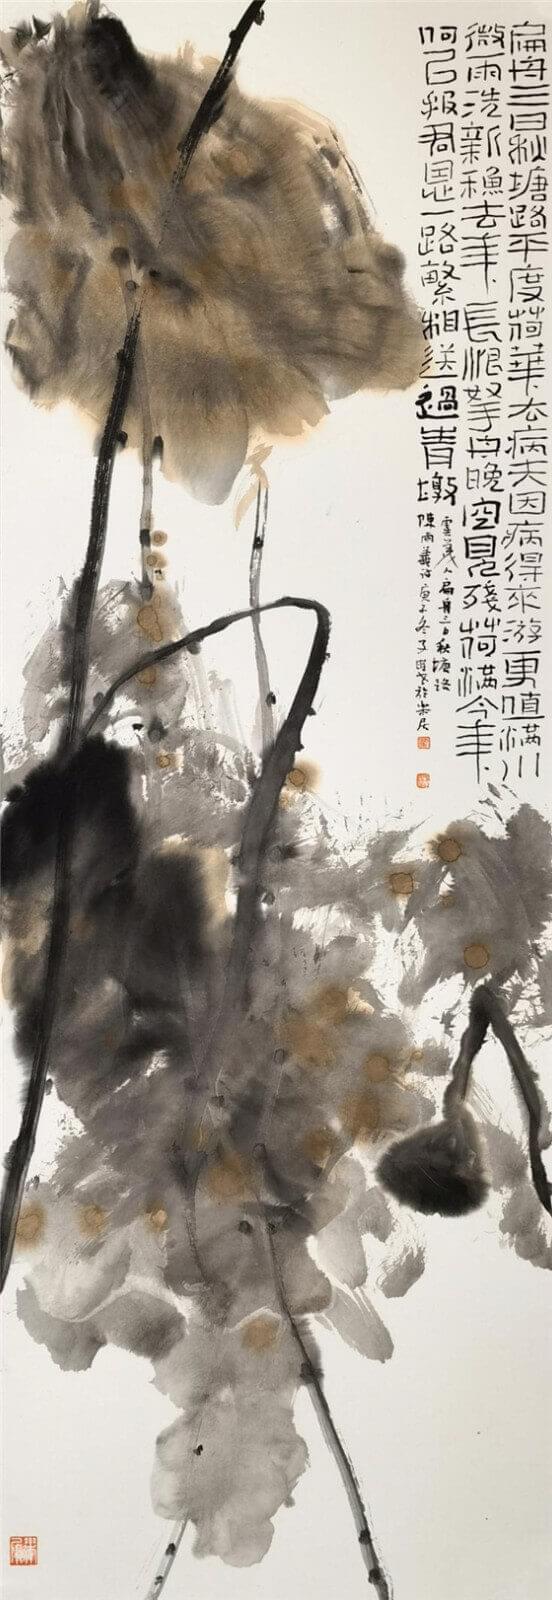 扁舟三日秋塘路平度荷華去病夫因病得來游更值滿川
微雨洗新穐去年長恨拏舟晚空見殘荷滿今年
何㠯报君恩一路繁相送過青墩
虞美人扁舟三日秋塘路
陳雨義詩庚子冬